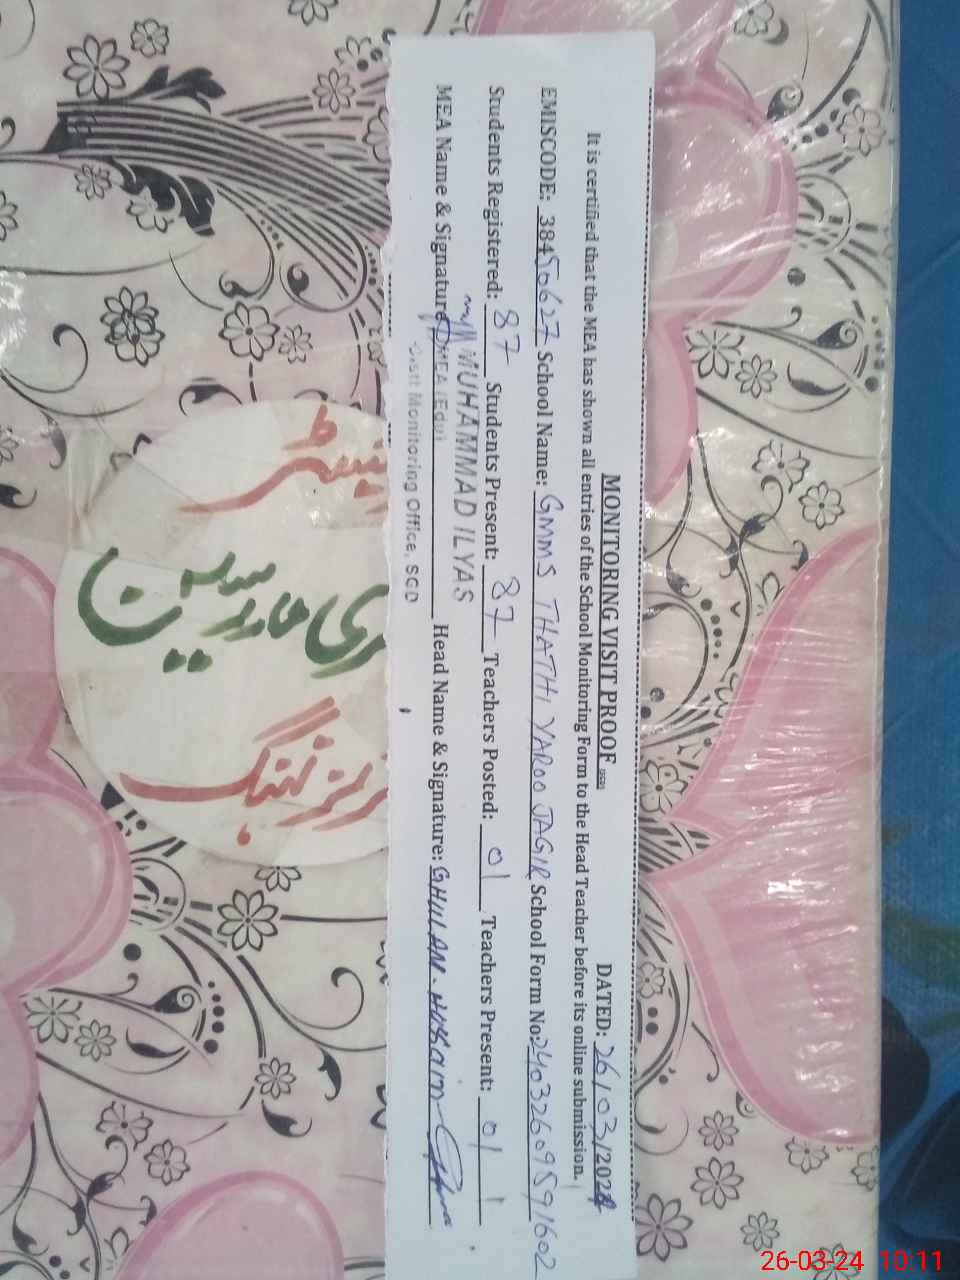 MONITORING VISIT PROOF DATED: 26/03/2024
It is certified that the MEA has shown all entries of the School Monitoring Form to the Head Teacher before its online submission.
EMISCODE: 38450627 School Name: GMMS THATHI YAROO JAGIR School Form No: 24032609591602
Students Registered: 87 Students Present: 87 Teachers Posted: 01 Teachers Present: 01
MUHAMMAD ILYAS
MEA Name & Signature MEA (Edu) Head Name & Signature: GHULAM HUSSAIN
Distt Monitoring Office, SGD
26-03-24 10:11